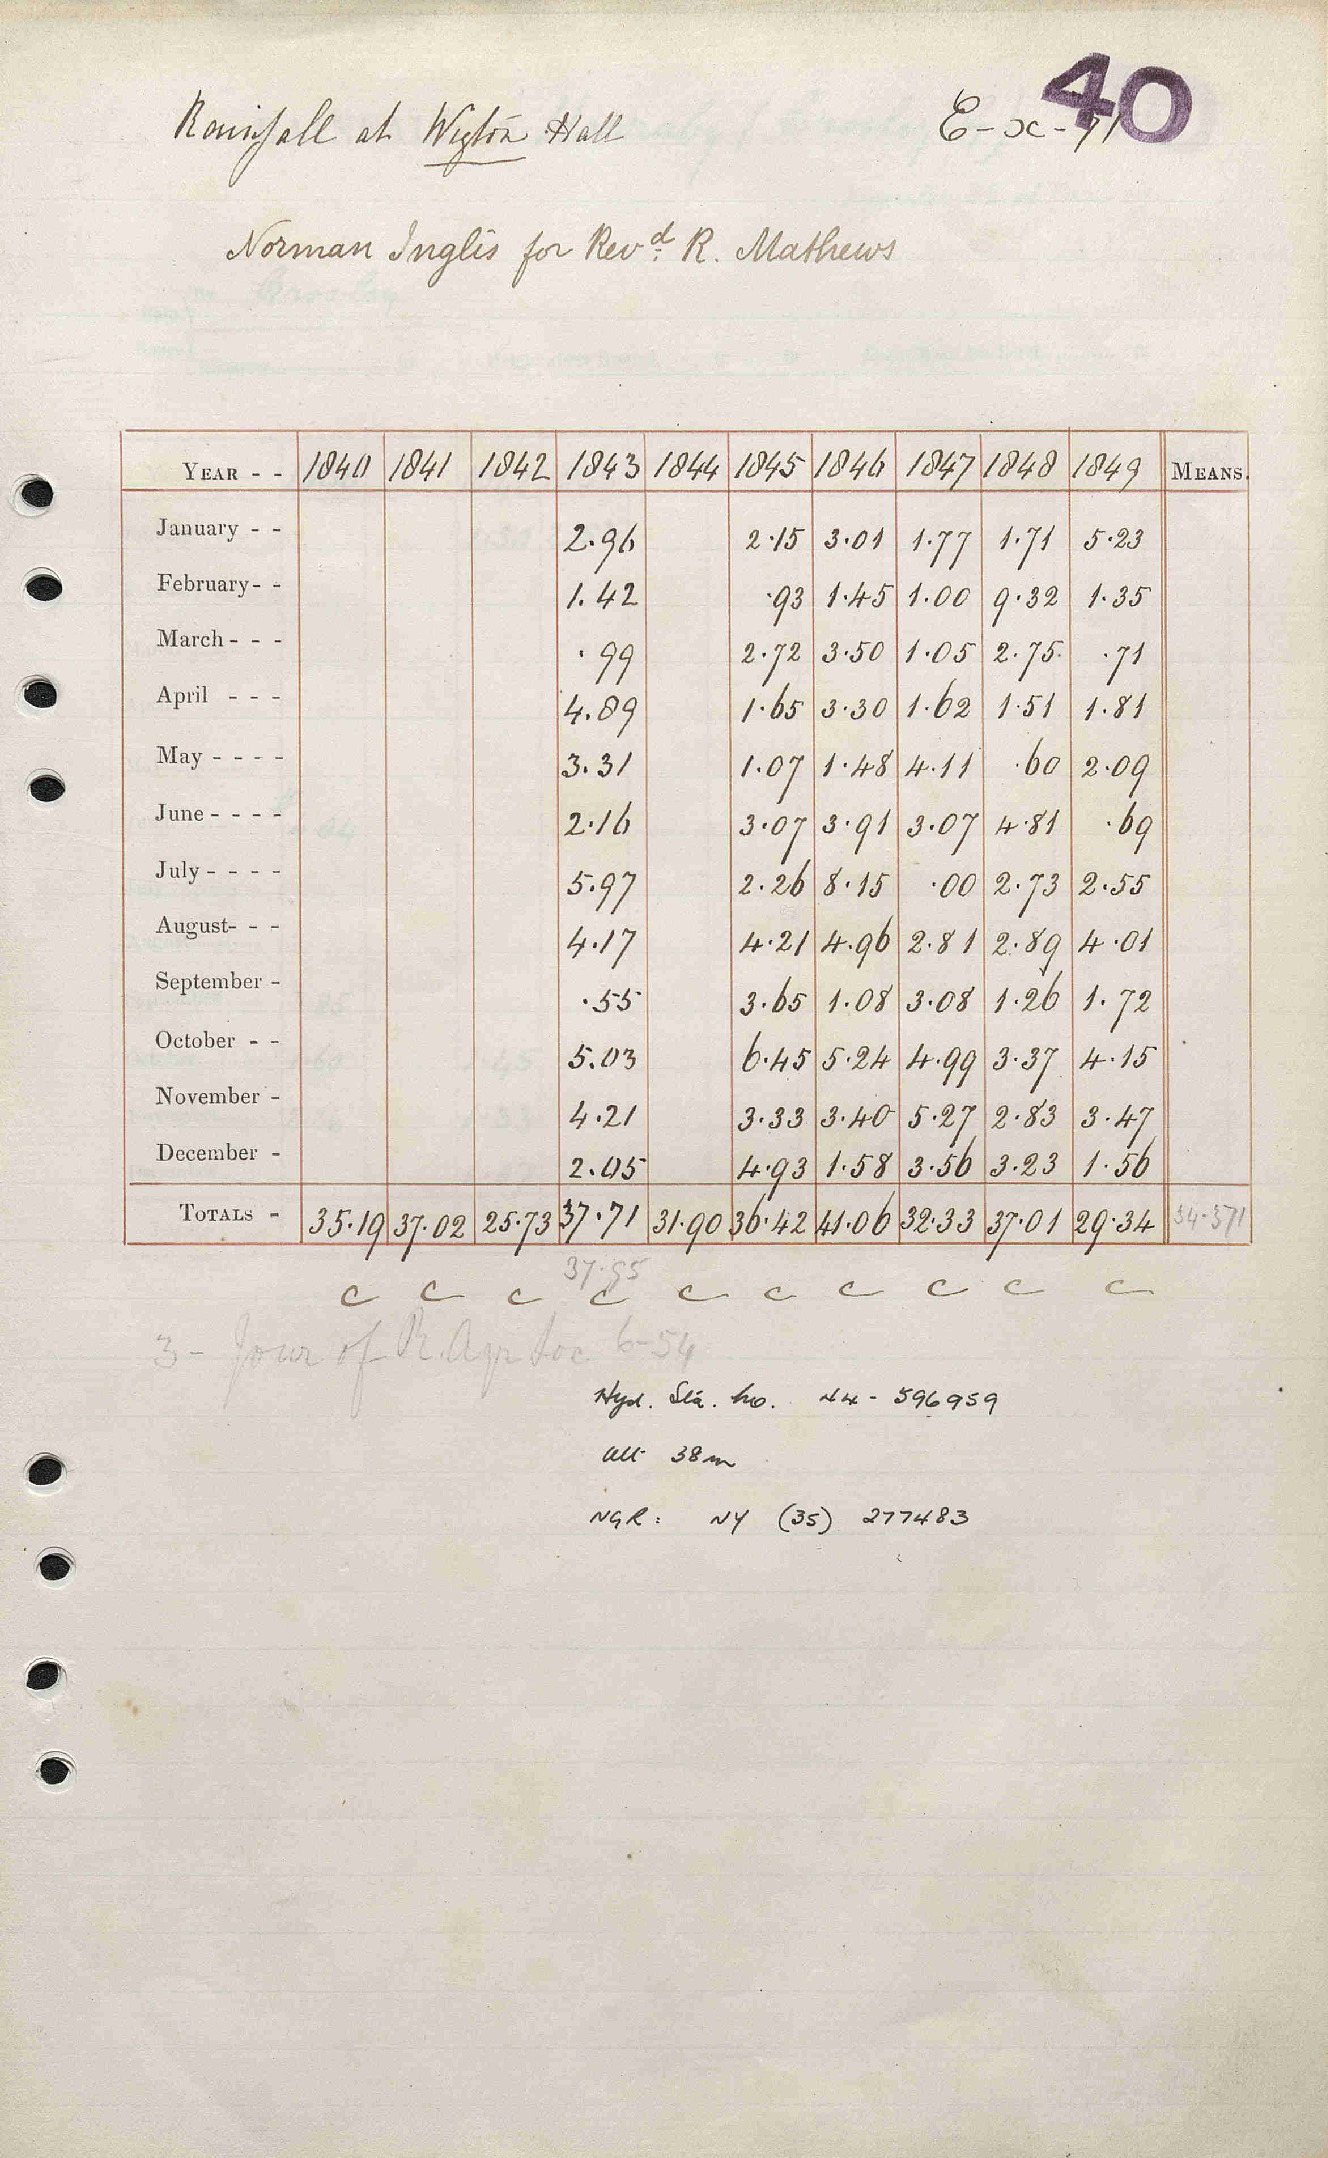 40
Rainfall at Wigton Hall E-x-71
Norman Inglis for Revd. R. Mathews
YEAR - - 1840 1841 1842 1843 1844 1845 1846 1847 1848 1849 MEANS.
January - - 2.96 2.15 3.01 1.77 1.71 5.23
February - - 1.42 .93 1.45 1.00 9.32 1.35
March - - - .99 2.72 3.50 1.05 2.75 .71
April - - - 4.89 1.65 3.30 1.62 1.51 1.81
May - - - - 3.31 1.07 1.48 4.11 .60 2.09
June - - - - 2.16 3.07 3.91 3.07 4.81 .69
July - - - - 5.97 2.26 8.15 .00 2.73 2.55
August - - - 4.17 4.21 4.96 2.81 2.89 4.01
September - .55 3.65 1.08 3.08 1.26 1.72
October - - 5.03 6.45 5.24 4.99 3.37 4.15
November - 4.21 3.33 3.40 5.27 2.83 3.47
December - 2.05 4.93 1.58 3.56 3.23 1.56
TOTALS - 35.19 37.02 25.73 37.71 31.90 36.42 41.06 32.33 37.01 29.34 34.371
37.95
c c c c c c c c c c
3 - Jour of R. Agr Soc. 6-54
Hyd. Sta. No. N4 - 596959
Alt 38m
NGR: NY (35) 277483